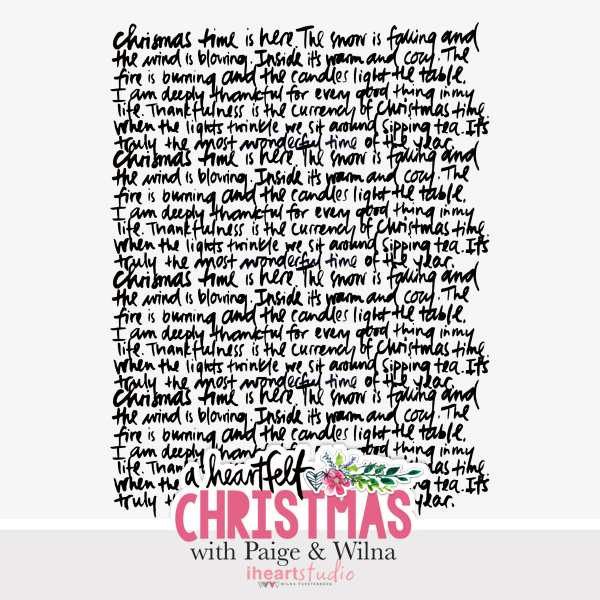 Christmas time is here. The snow is falling and
the wind is blowing. Inside it's warm and cozy. The
fire is burning and the candles light the table.
I am deeply thankful for every good thing in my
life. Thankfulness is the currency of Christmas time.
When the lights twinkle we sit around sipping tea. It's
truly the most wonderful time of the year.
Christmas time is here. The snow is falling and
the wind is blowing. Inside it's warm and cozy. The
fire is burning and the candles light the table.
I am deeply thankful for every good thing in my
life. Thankfulness is the currency of Christmas time.
When the lights twinkle we sit around sipping tea. It's
truly the most wonderful time of the year.
Christmas time is here. The snow is falling and
the wind is blowing. Inside it's warm and cozy. The
fire is burning and the candles light the table.
I am deeply thankful for every good thing in my
life. Thankfulness is the currency of Christmas time.
When the lights twinkle we sit around sipping tea. It's
truly the most wonderful time of the year.
Christmas time is here. The snow is falling and
the wind is blowing. Inside it's warm and cozy. The
fire is burning and the candles light the table.
I am deeply for every good thing in my
life. time.
When the tea. It's
truly year.
a heartfelt
CHRISTMAS
with Paige & Wilna
iheartstudio
WILNA FURSTENBERG